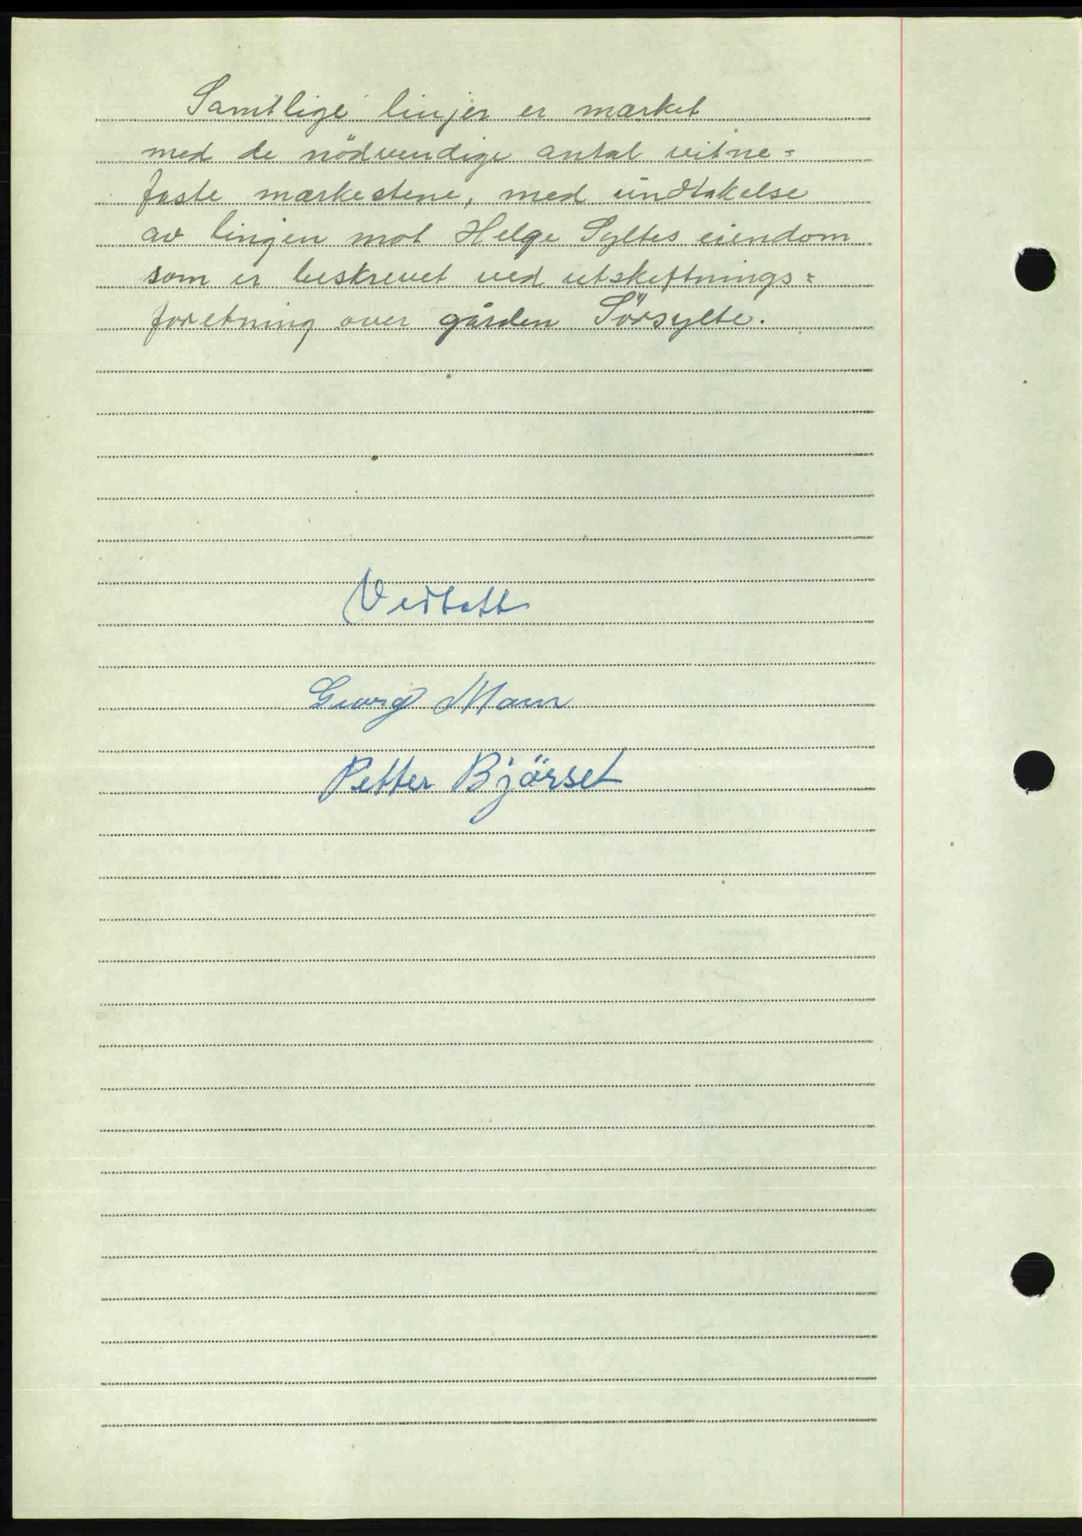 Samtlige linjer er mærket
med de nödvendige antal vitne=
faste mærkestene, med undtakelse
av linjen mot Helge Syltes eiendom
som er beskrevet ved utskiftnings=
foretning over gården Sörsylte.
Vedtatt
Georg
Petter Björset